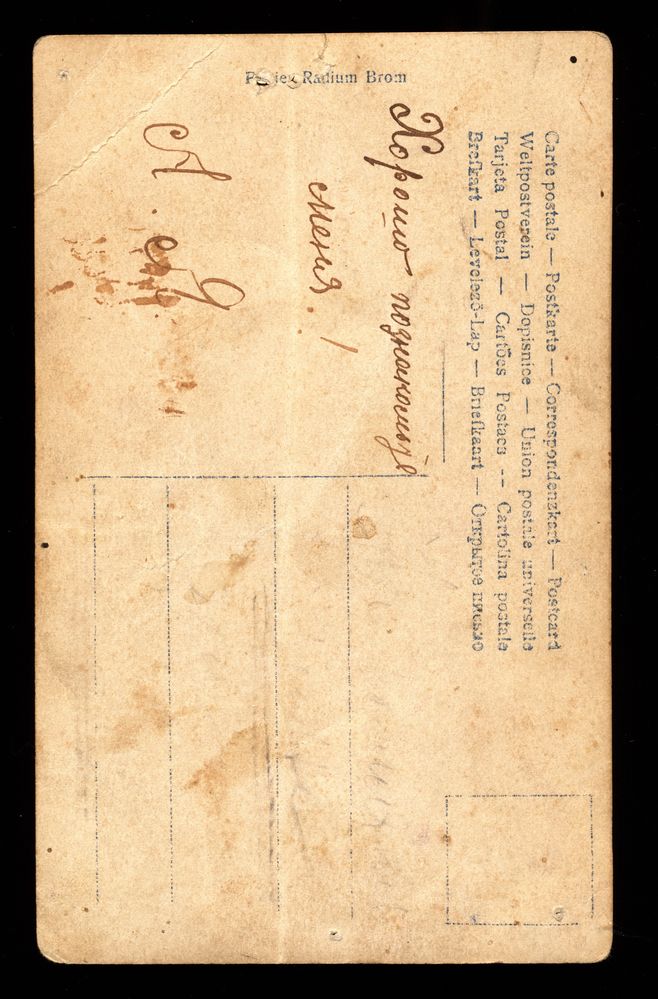 Carte postale — Postkarte — Correspondenzkart — Postcard
Weltpostverein — Dopisnice — Union postale universelle
Tarjeta Postal — Cartões Postaes -- Cartolina postale
Brefkart — Levelező-Lap — Briefkaart — Открытое письмо
Хорошо
меня!
Radium Brom